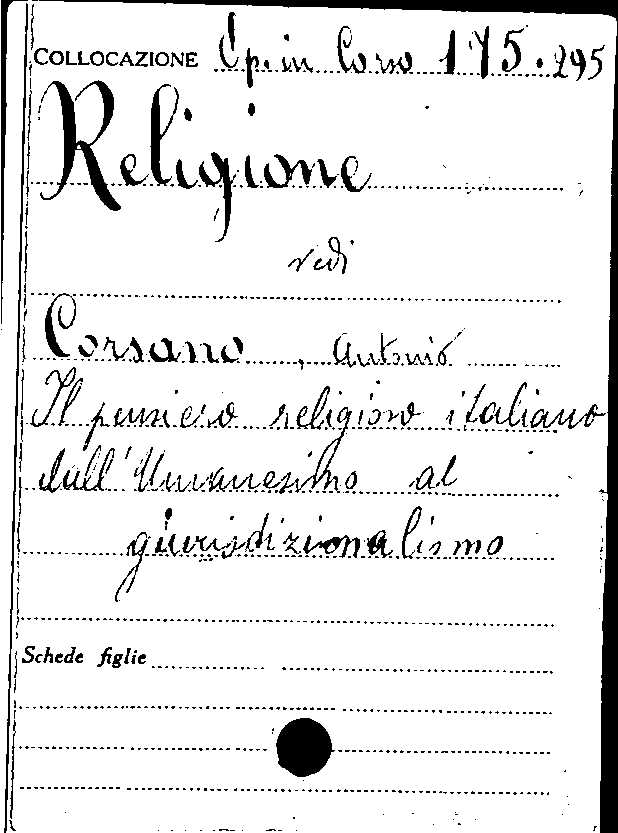 COLLOCAZIONE Op. in Corso 175.295
Religione
vedi
Corsano, Antonio
Il pensiero religioso italiano
dall'Umanesimo al
giurisdizionalismo
Schede figlie